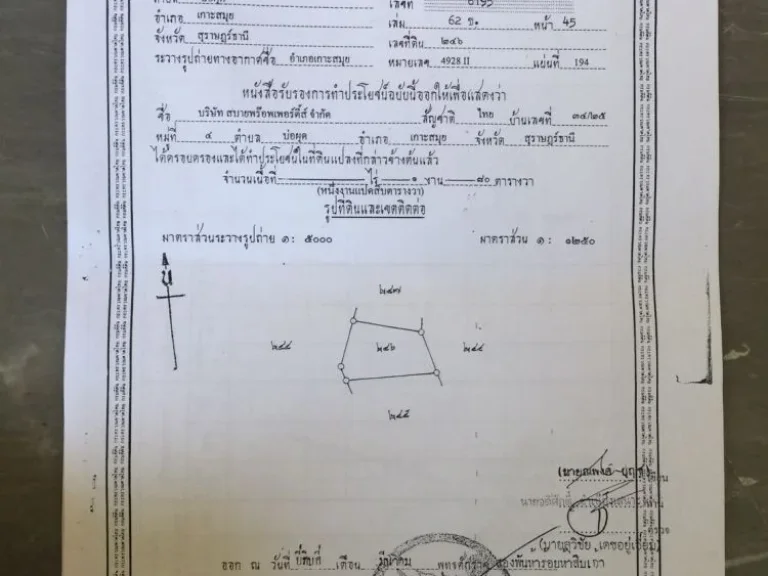 เลขที่ 6195
อำเภอ เกาะสมุย เล่ม 62 ข. หน้า 45
จังหวัด สุราษฎร์ธานี เลขที่ดิน ๒๔๖
ระวางรูปถ่ายทางอากาศชื่อ อำเภอเกาะสมุย หมายเลข 4928 II แผ่นที่ 194
หนังสือรับรองการทำประโยชน์ฉบับนี้ออกให้เพื่อแสดงว่า
ชื่อ บริษัท สบายพร๊อพเพอร์ตี้ส์ จำกัด สัญชาติ ไทย บ้านเลขที่ ๓๔/๒๕
หมู่ที่ ๔ ตำบล บ่อผุด อำเภอ เกาะสมุย จังหวัด สุราษฎร์ธานี
ได้ครอบครองและได้ทำประโยชน์ในที่ดินแปลงที่กล่าวข้างต้นแล้ว
จำนวนเนื้อที่ ไร่ ๑ งาน ๘๐ ตารางวา
(หนึ่งงานแปดสิบตารางวา)
รูปที่ดินและเขตติดต่อ
มาตราส่วนระวางรูปถ่าย ๑ : ๕๐๐๐ มาตราส่วน ๑ : ๑๒๕๐
น
๒๔๗
๒๔๔ ๒๔๖ ๒๔๔
๒๔๕
เขียน
ตรวจ
ออก ณ วันที่ ยี่สิบสี่ เดือน มีนาคม พุทธศักราช สองพันห้าร้อยห้าสิบเอ